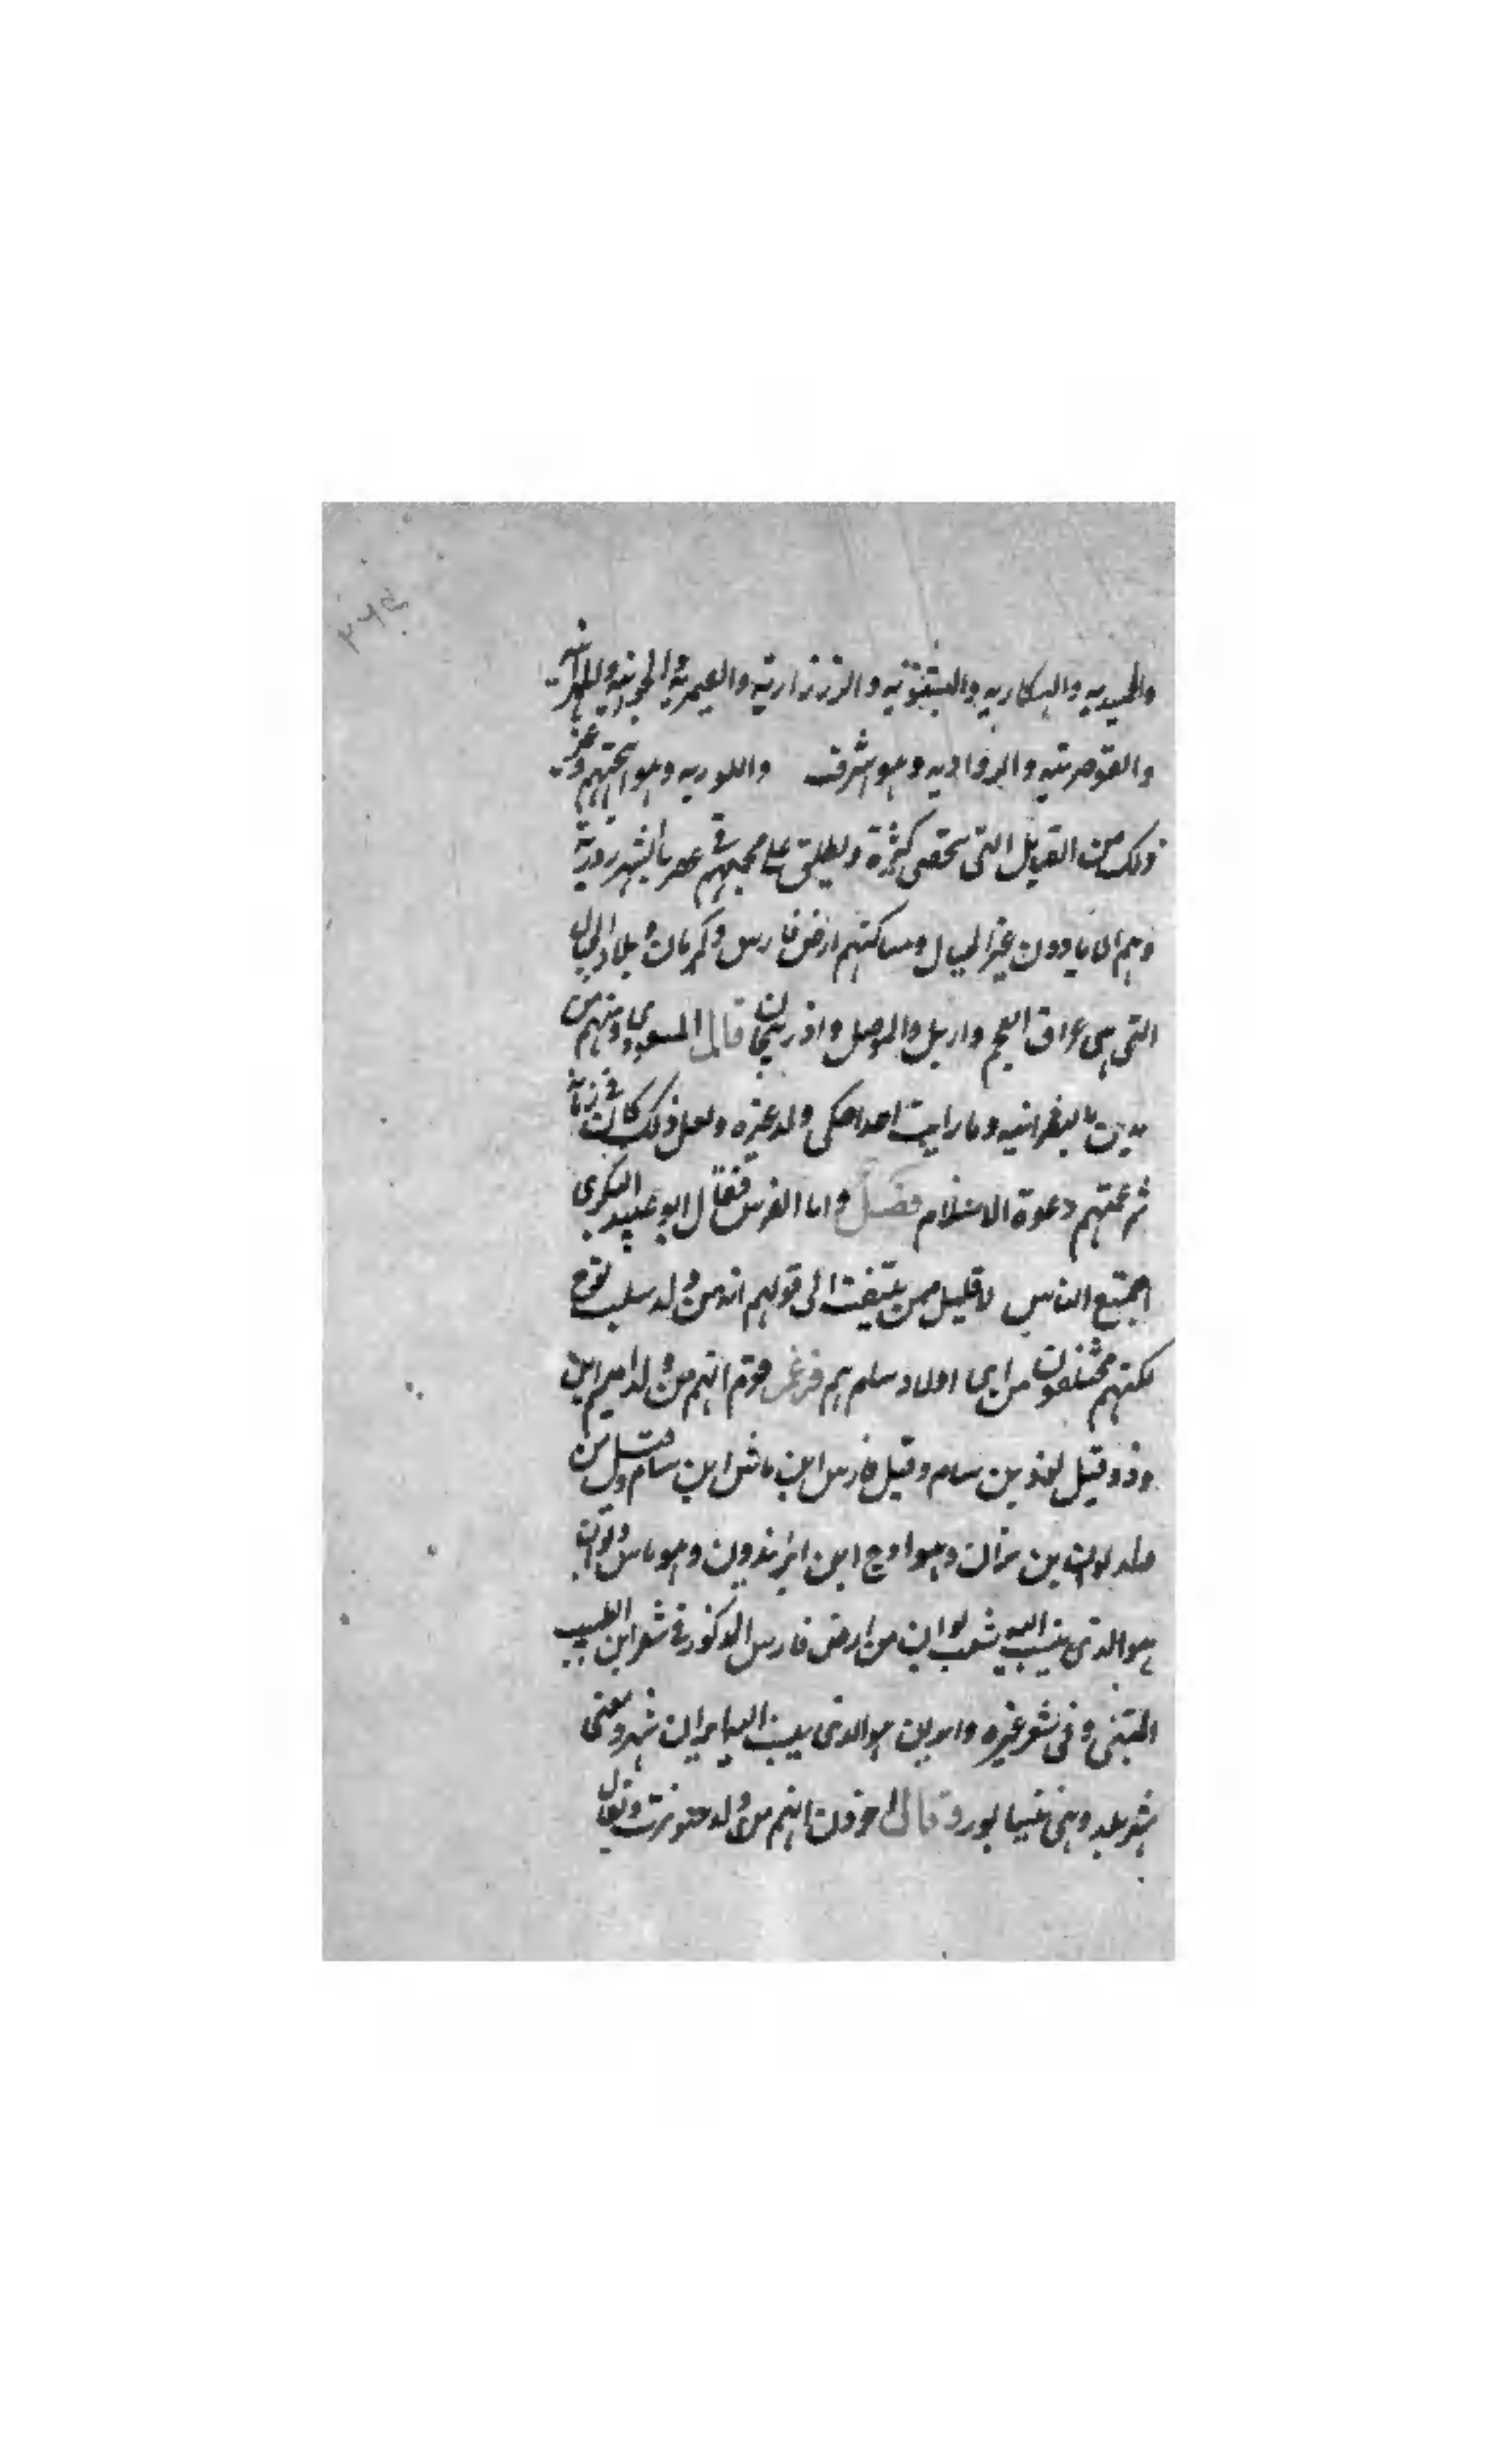 والحميديه والهكاريه والبشنويه والزرزاريه والعيمريه والجوبيه والمهرانيه
والقوصرتيه والرواديه وهم اشرف واللوريه وهم اتحتهم وغير
ذلك من القبايل التي تحصى كثرة ويطلق على مجميهم في عصرنا الشهرزوريه
وهم لا ياوون غير الجبال ومساكنهم ارض فارس وكرمان وبلاد الجبال
التي هي عراق العجم واربل والموصل واذربيجان قال المسعودي ومنهم من
يدين بالنصرانيه وما رايت احدا حكى ولد غيره ولعل ذلك كان في زمانه
ثم عمتهم دعوة الاسلام فصل واما الفرس فقال ابو عبيد البكري
اجتمع الناس لا قليل ممن يلتفت الى قولهم انه من ولد سلب نوح
لكنهم مختلفون من اي اولاد سلم هم فزعم قوم انهم من ولد اميم ابن
وذ وقيل لوذ بن سام وقيل فارس ابن ماش ابن سام وقيل من
ولد بوان بن يران وهو اوج ابن ايريدون وهو ناس وبوان
هو الذي ينسب اليه شعب بوان من ارض فارس المذكور في شعر ابن الطيب
المتنبي وفي شعر غيره وايرين هو الذي ينسب اليه ايران شهر ومعنى
شهر بلد وهي نيسابور وقال اخرون انهم من ولد ويقال